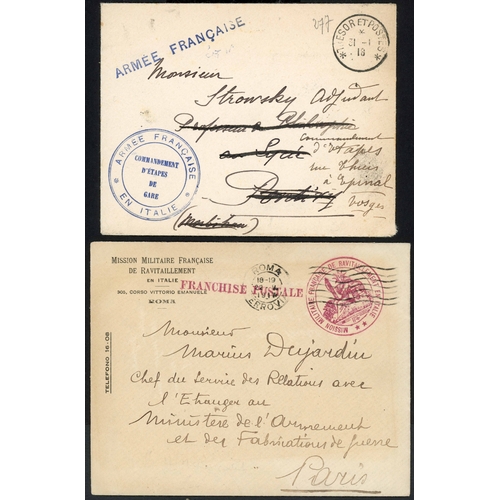 ARMÉE FRANÇAISE
277
TRESOR ET POSTES
31 - 1
18
Monsieur
Strowsky Adjudant
Professeur de Philosophie
Commandement
d'Étapes
au Lycée
rue Thiers
à Epinal
Pontivy
Vosges
(Morbihan)
ARMÉE FRANÇAISE
COMMANDEMENT
D'ÉTAPES
DE
GARE
EN ITALIE
MISSION MILITAIRE FRANÇAISE
DE RAVITAILLEMENT
EN ITALIE
901, CORSO VITTORIO EMANUELE
ROMA
TELEFONO 16-08
FRANCHISE POSTALE
ROMA
18-19
FERROVIA
MISSION MILITAIRE FRANÇAISE DE RAVITAILLEMENT EN ITALIE
Monsieur
Marius Dujardin
Chef du Service des Relations avec
l'Etranger au
Ministère de l'Armement
et des Fabrications de guerre
Paris